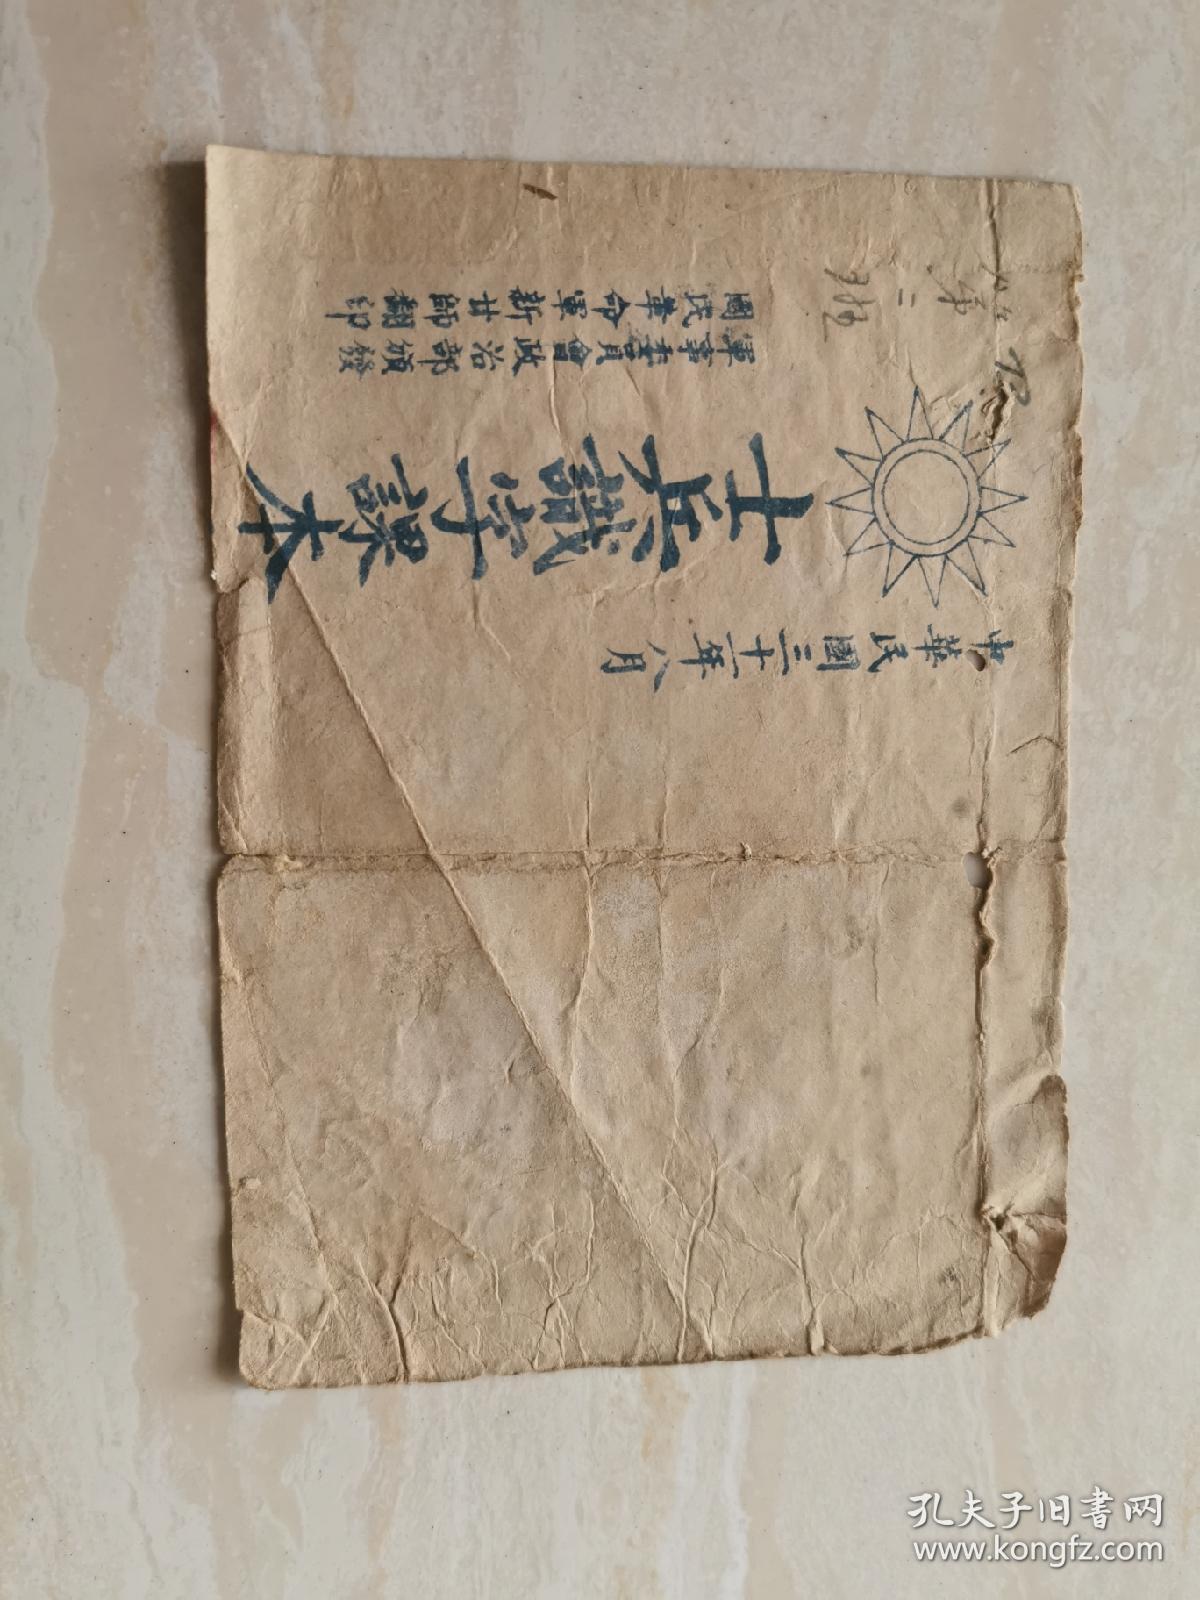 中華民國三十一年八月
士兵識字課本
軍事委員會政治部頒發
國民革命軍新廿師翻印
第二班
孔夫子旧書网
www.kongfz.com